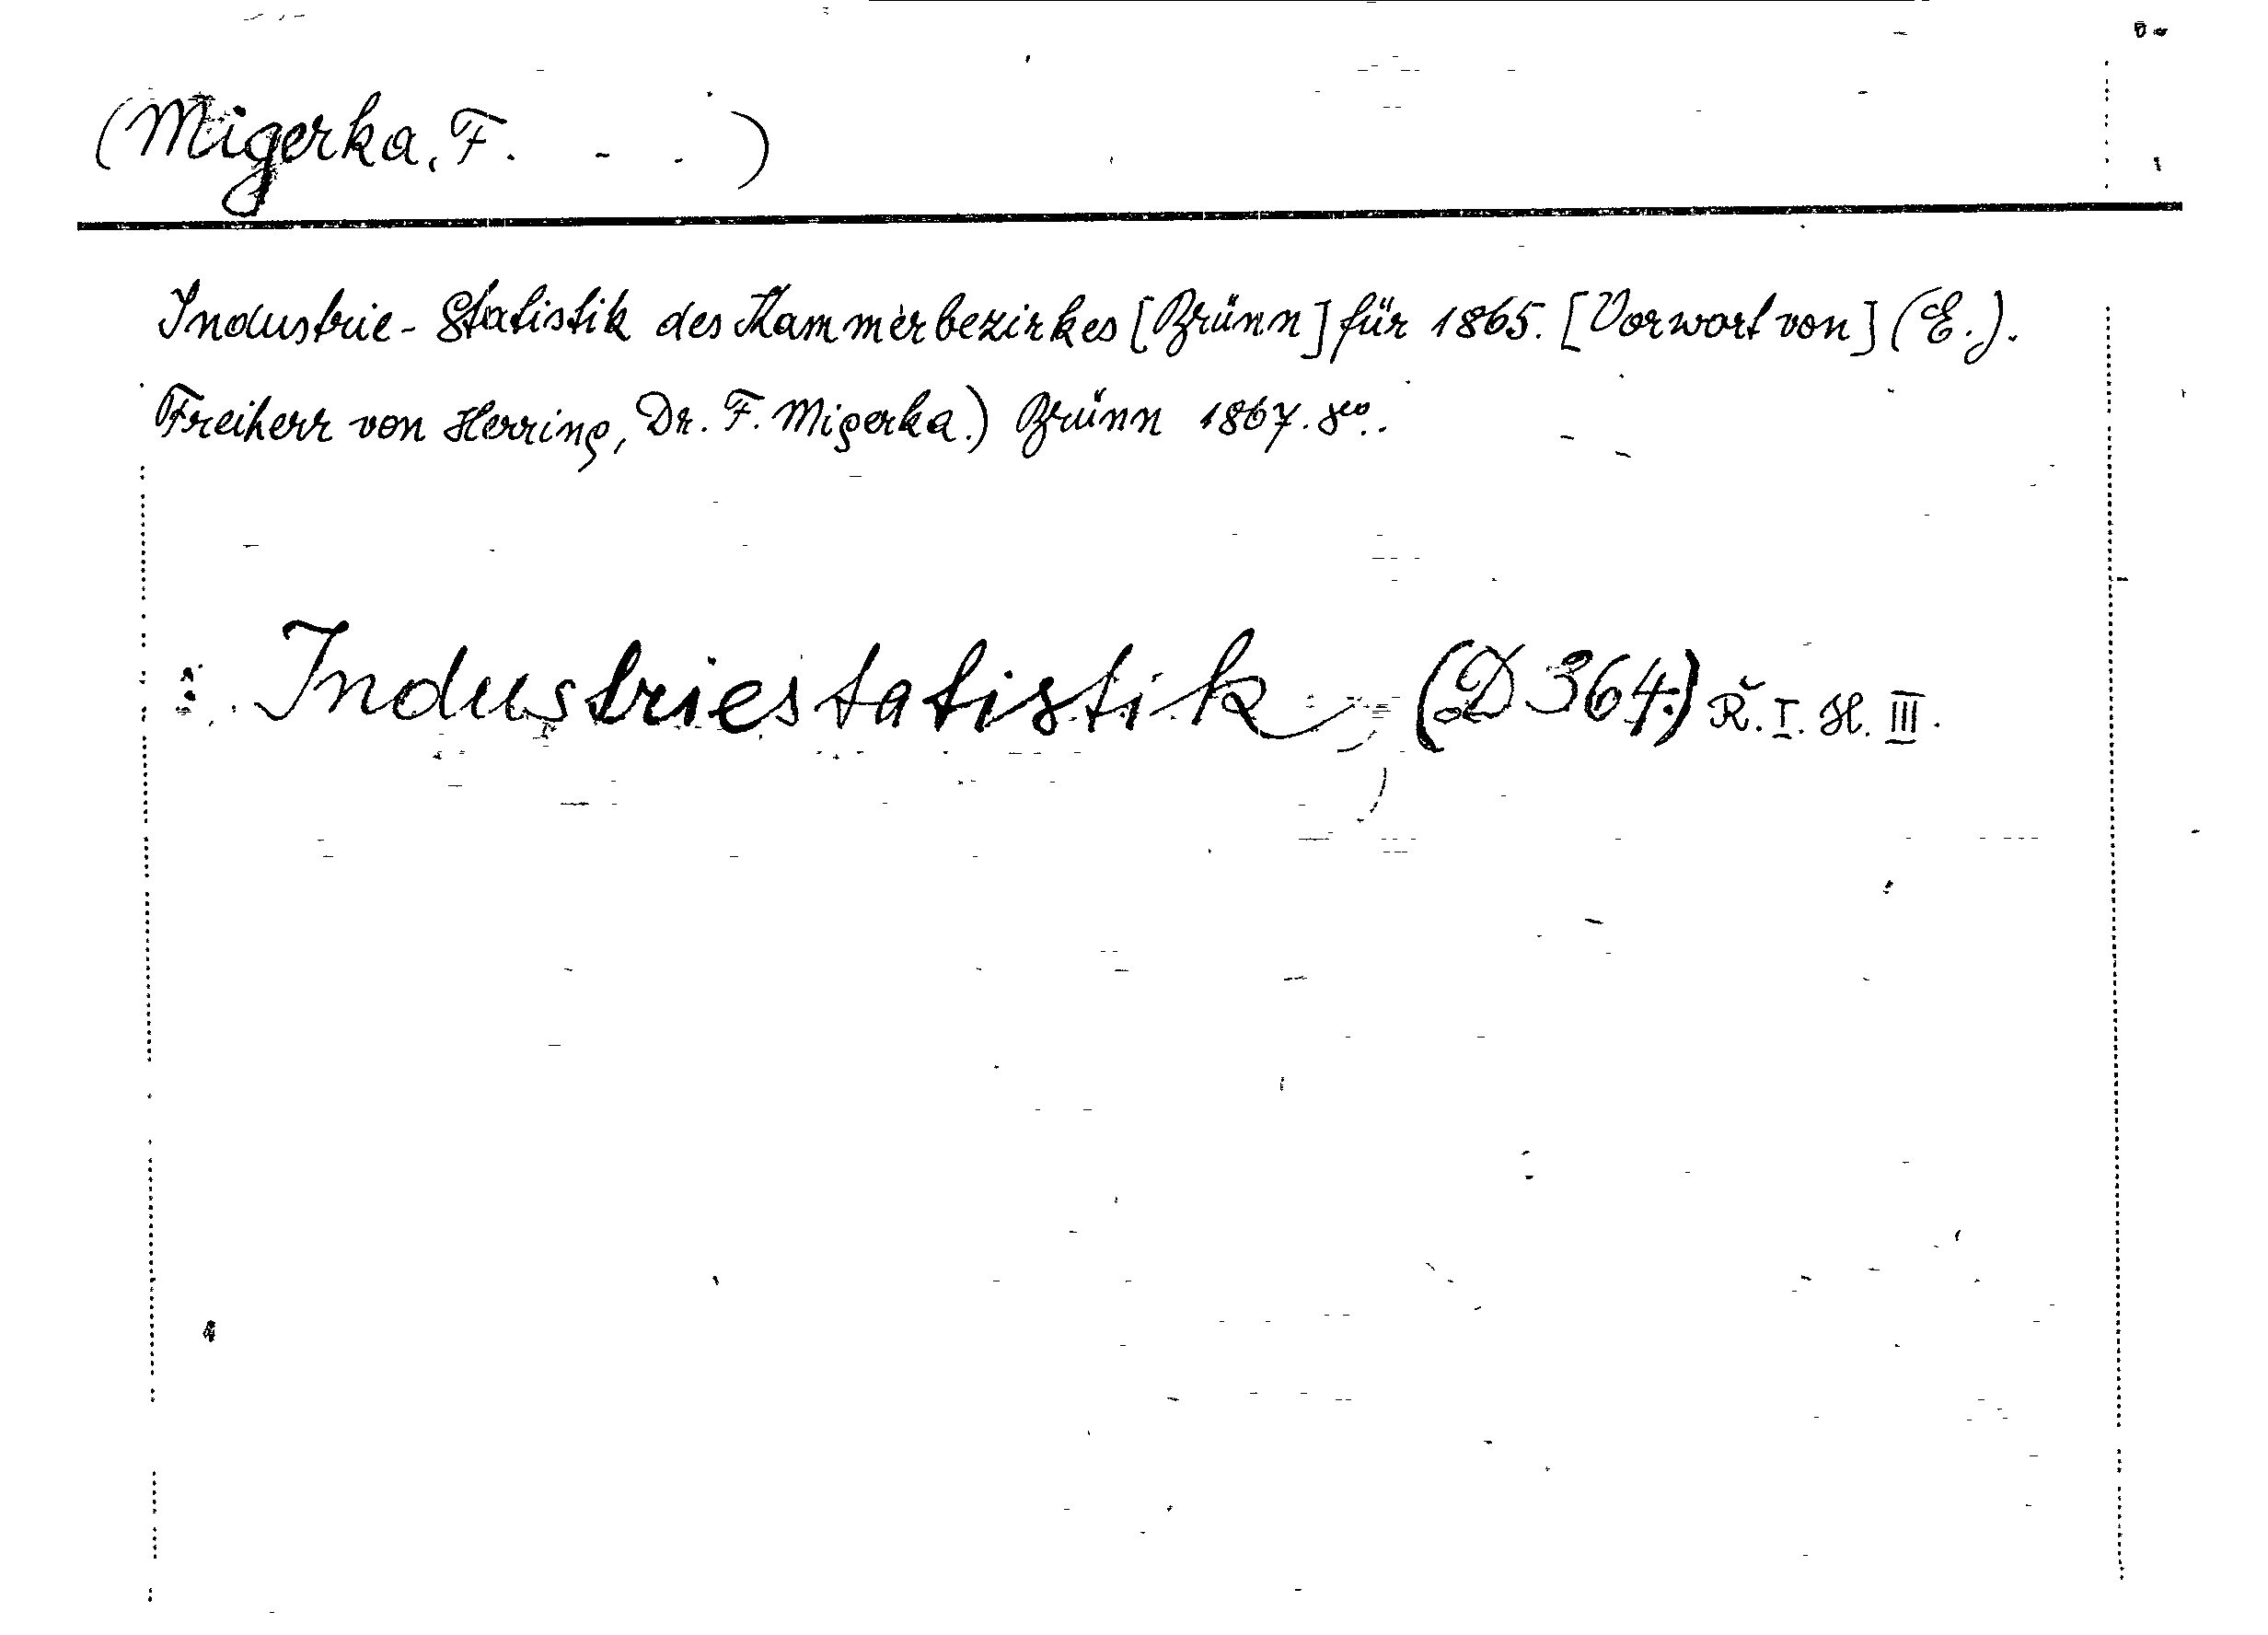 (Migerka, F. - . )
Industrie-Statistik des Kammerbezirkes [Brünn] für 1865. [Vorwort von] (E.).
Freiherr von Herring, Dr. F. Migerka.) Brünn 1867. 8vo.
Industriestatistik (D 364.) Ř. I. H. III.